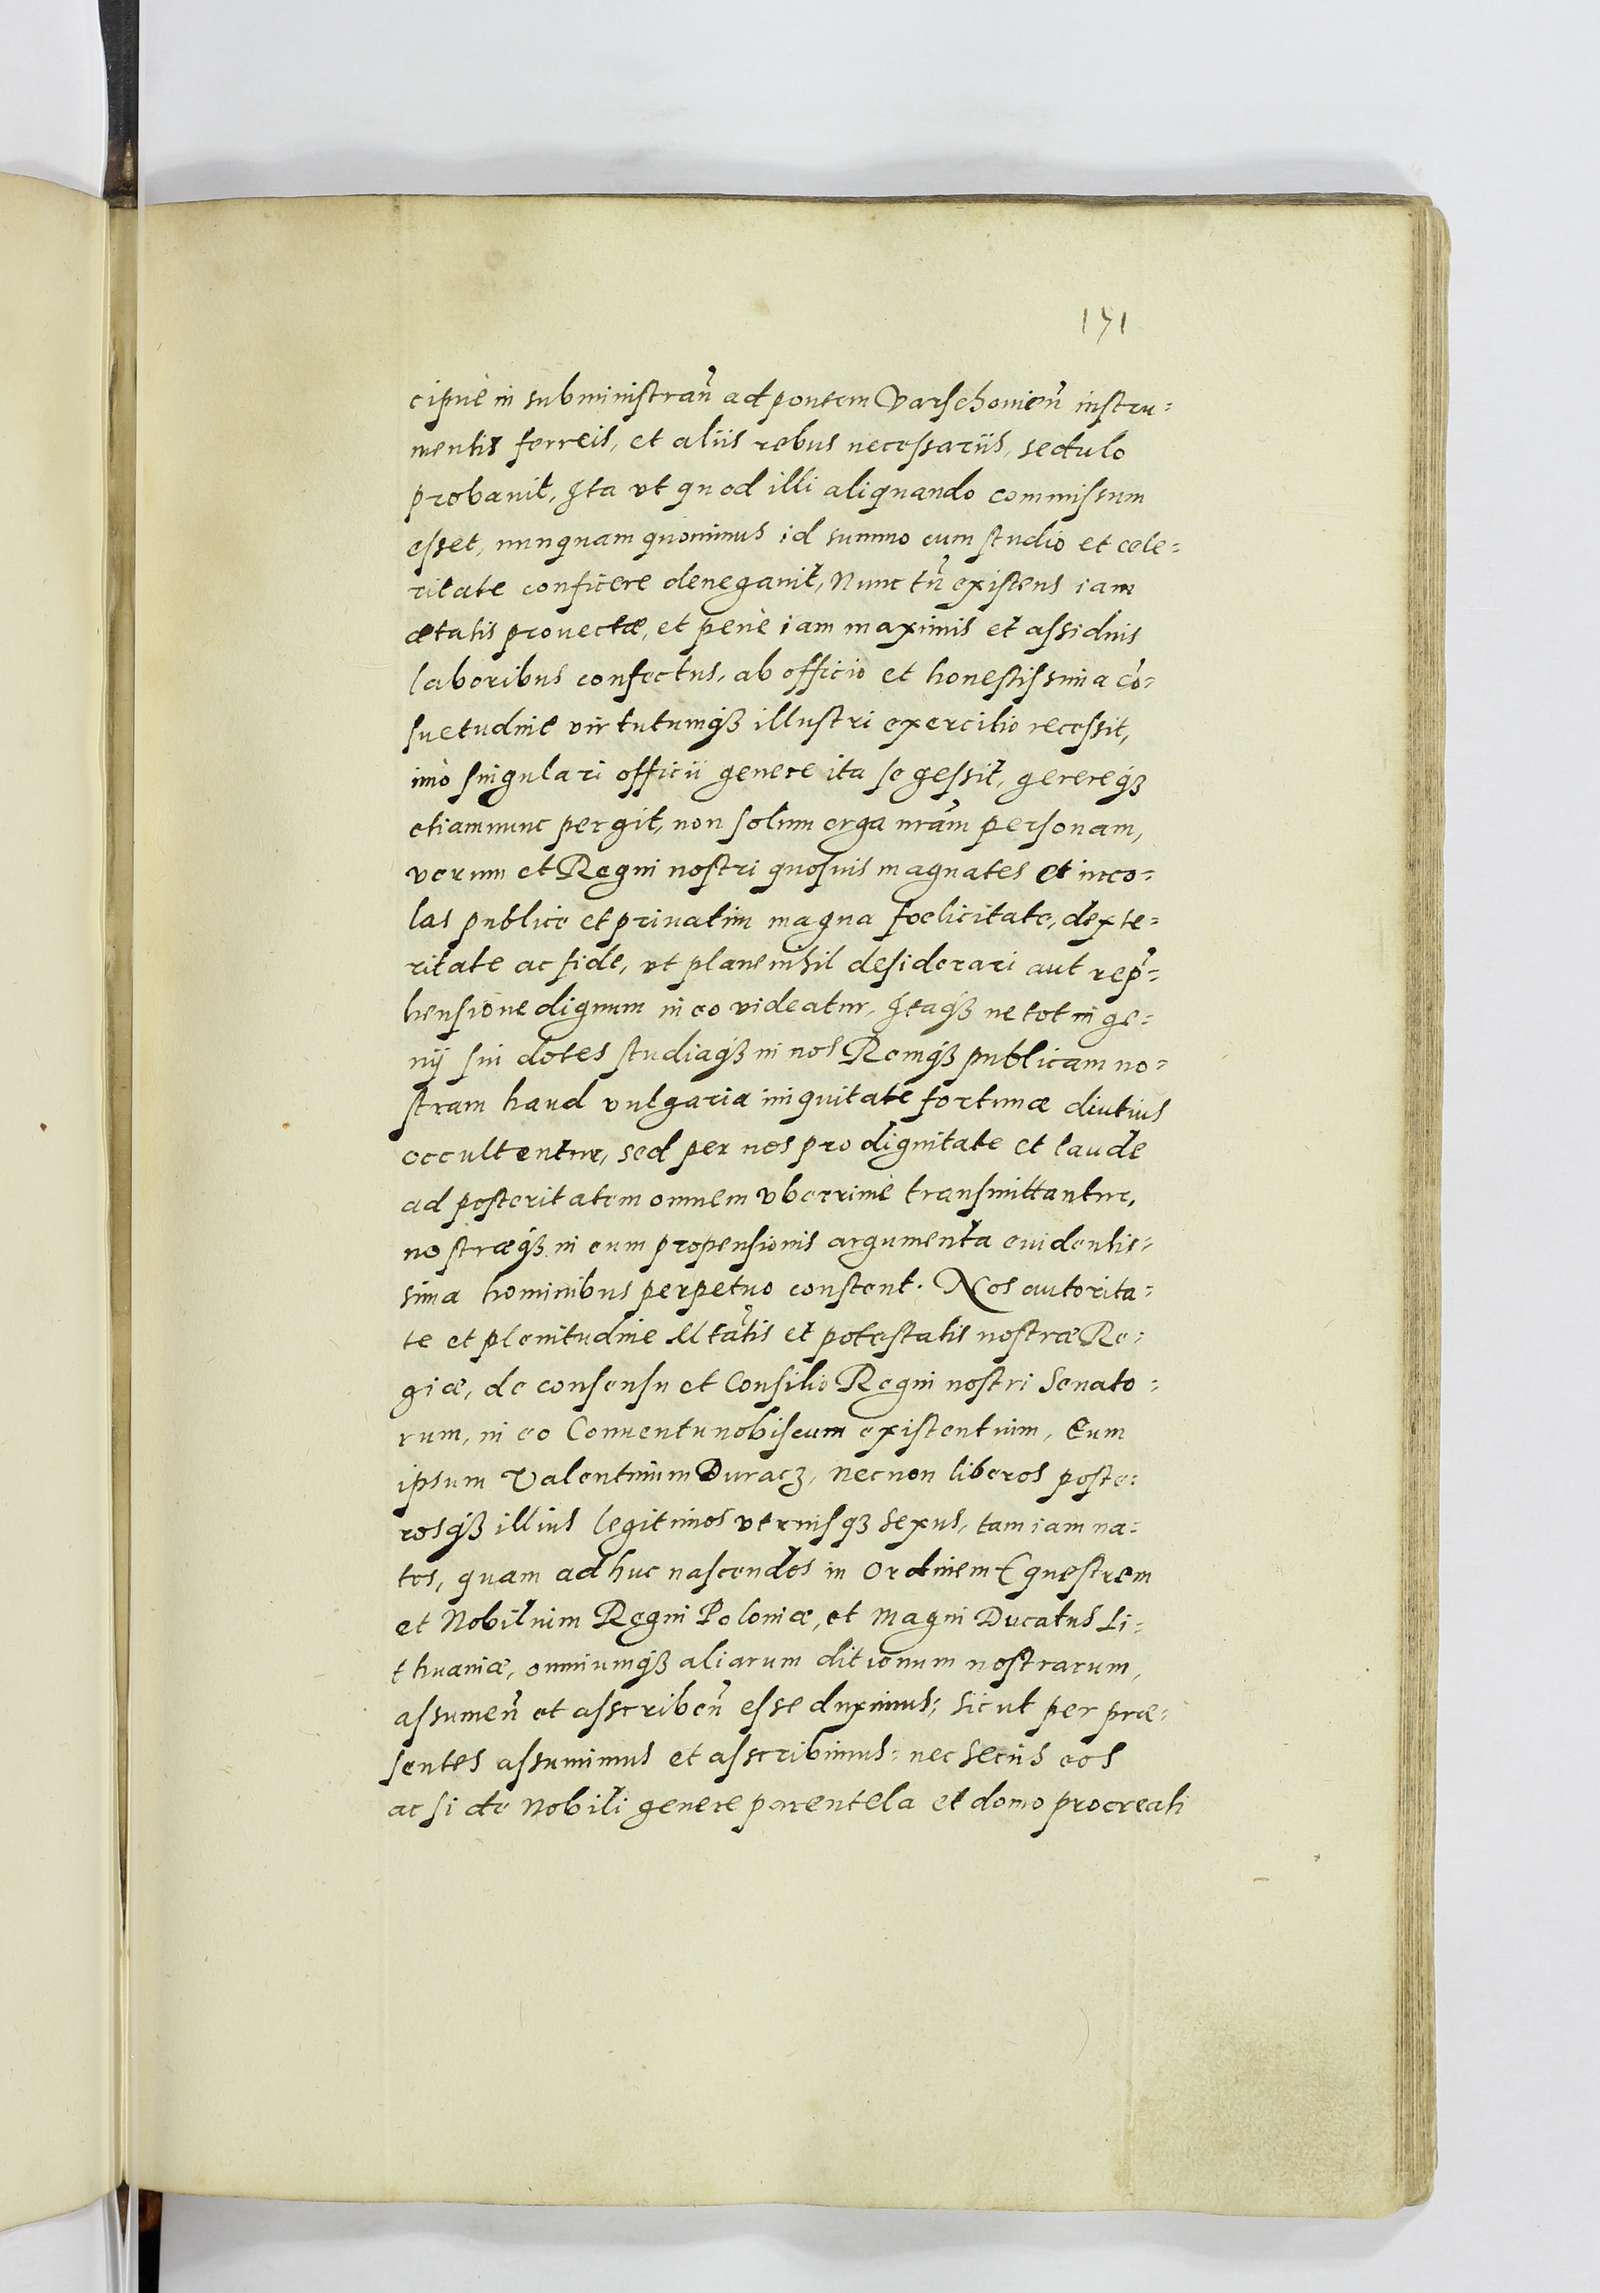 171
cipuè in subministrañ ad pontem Varschouień instru=
mentis ferreis, et aliis rebus necessariis, sedulo
probauit, Ita vt quod illi aliquando commissum
esset, nunquam quominus id summo cum studio et cele=
ritate conficere denegauit, Nunc tñ existens iam
ætatis prouectæ, et penè iam maximis et assiduis
laboribus confectus, ab officio et honestissima cõ=
suetudine virtutumq₃ illustri exercitio recessit,
imò singulari officii genere ita se gessit, gerereq₃
etiamnunc pergit, non solum erga nr̃am personam,
verum et Regni nostri quosuis magnates et inco=
las publice et priuatim magna foelicitate, dexte=
ritate ac fide, vt plane nihil desiderari aut rep̃=
hensione dignum in eo videatur, Itaq₃ ne tot inge=
nij sui dotes studiaq₃ in nos Remq₃ publicam no=
stram haud vulgaria iniquitate fortunæ diutius
occultentur, sed per nos pro dignitate et laude
ad posteritatem omnem vberrimè transmittantur,
nostræq₃ in eum propensionis argumenta euidentis=
sima hominibus perpetuo constent. Nos autorita=
te et plenitudine Mtãtis et potestatis nostræ Re=
giæ, de consensu et Consilio Regni nostri Senato=
rum, in eo Conuentu nobiscum existentium, Eum
ipsum Valentinum Duracz, necnon liberos poste=
rosq₃ illius legitimos vtriusq₃ sexus, tam iam na=
tos, quam adhuc nascendos in Ordinem Equestrem
et Nobilium Regni Poloniæ, et Magni Ducatus Li=
thuaniæ, omniumq₃ aliarum ditionum nostrarum,
assumeñ et asscribeñ esse duximus, sicut per præ=
sentes assumimus et asscribimus: nec secus eos
ac si de Nobili genere parentela et domo procreati